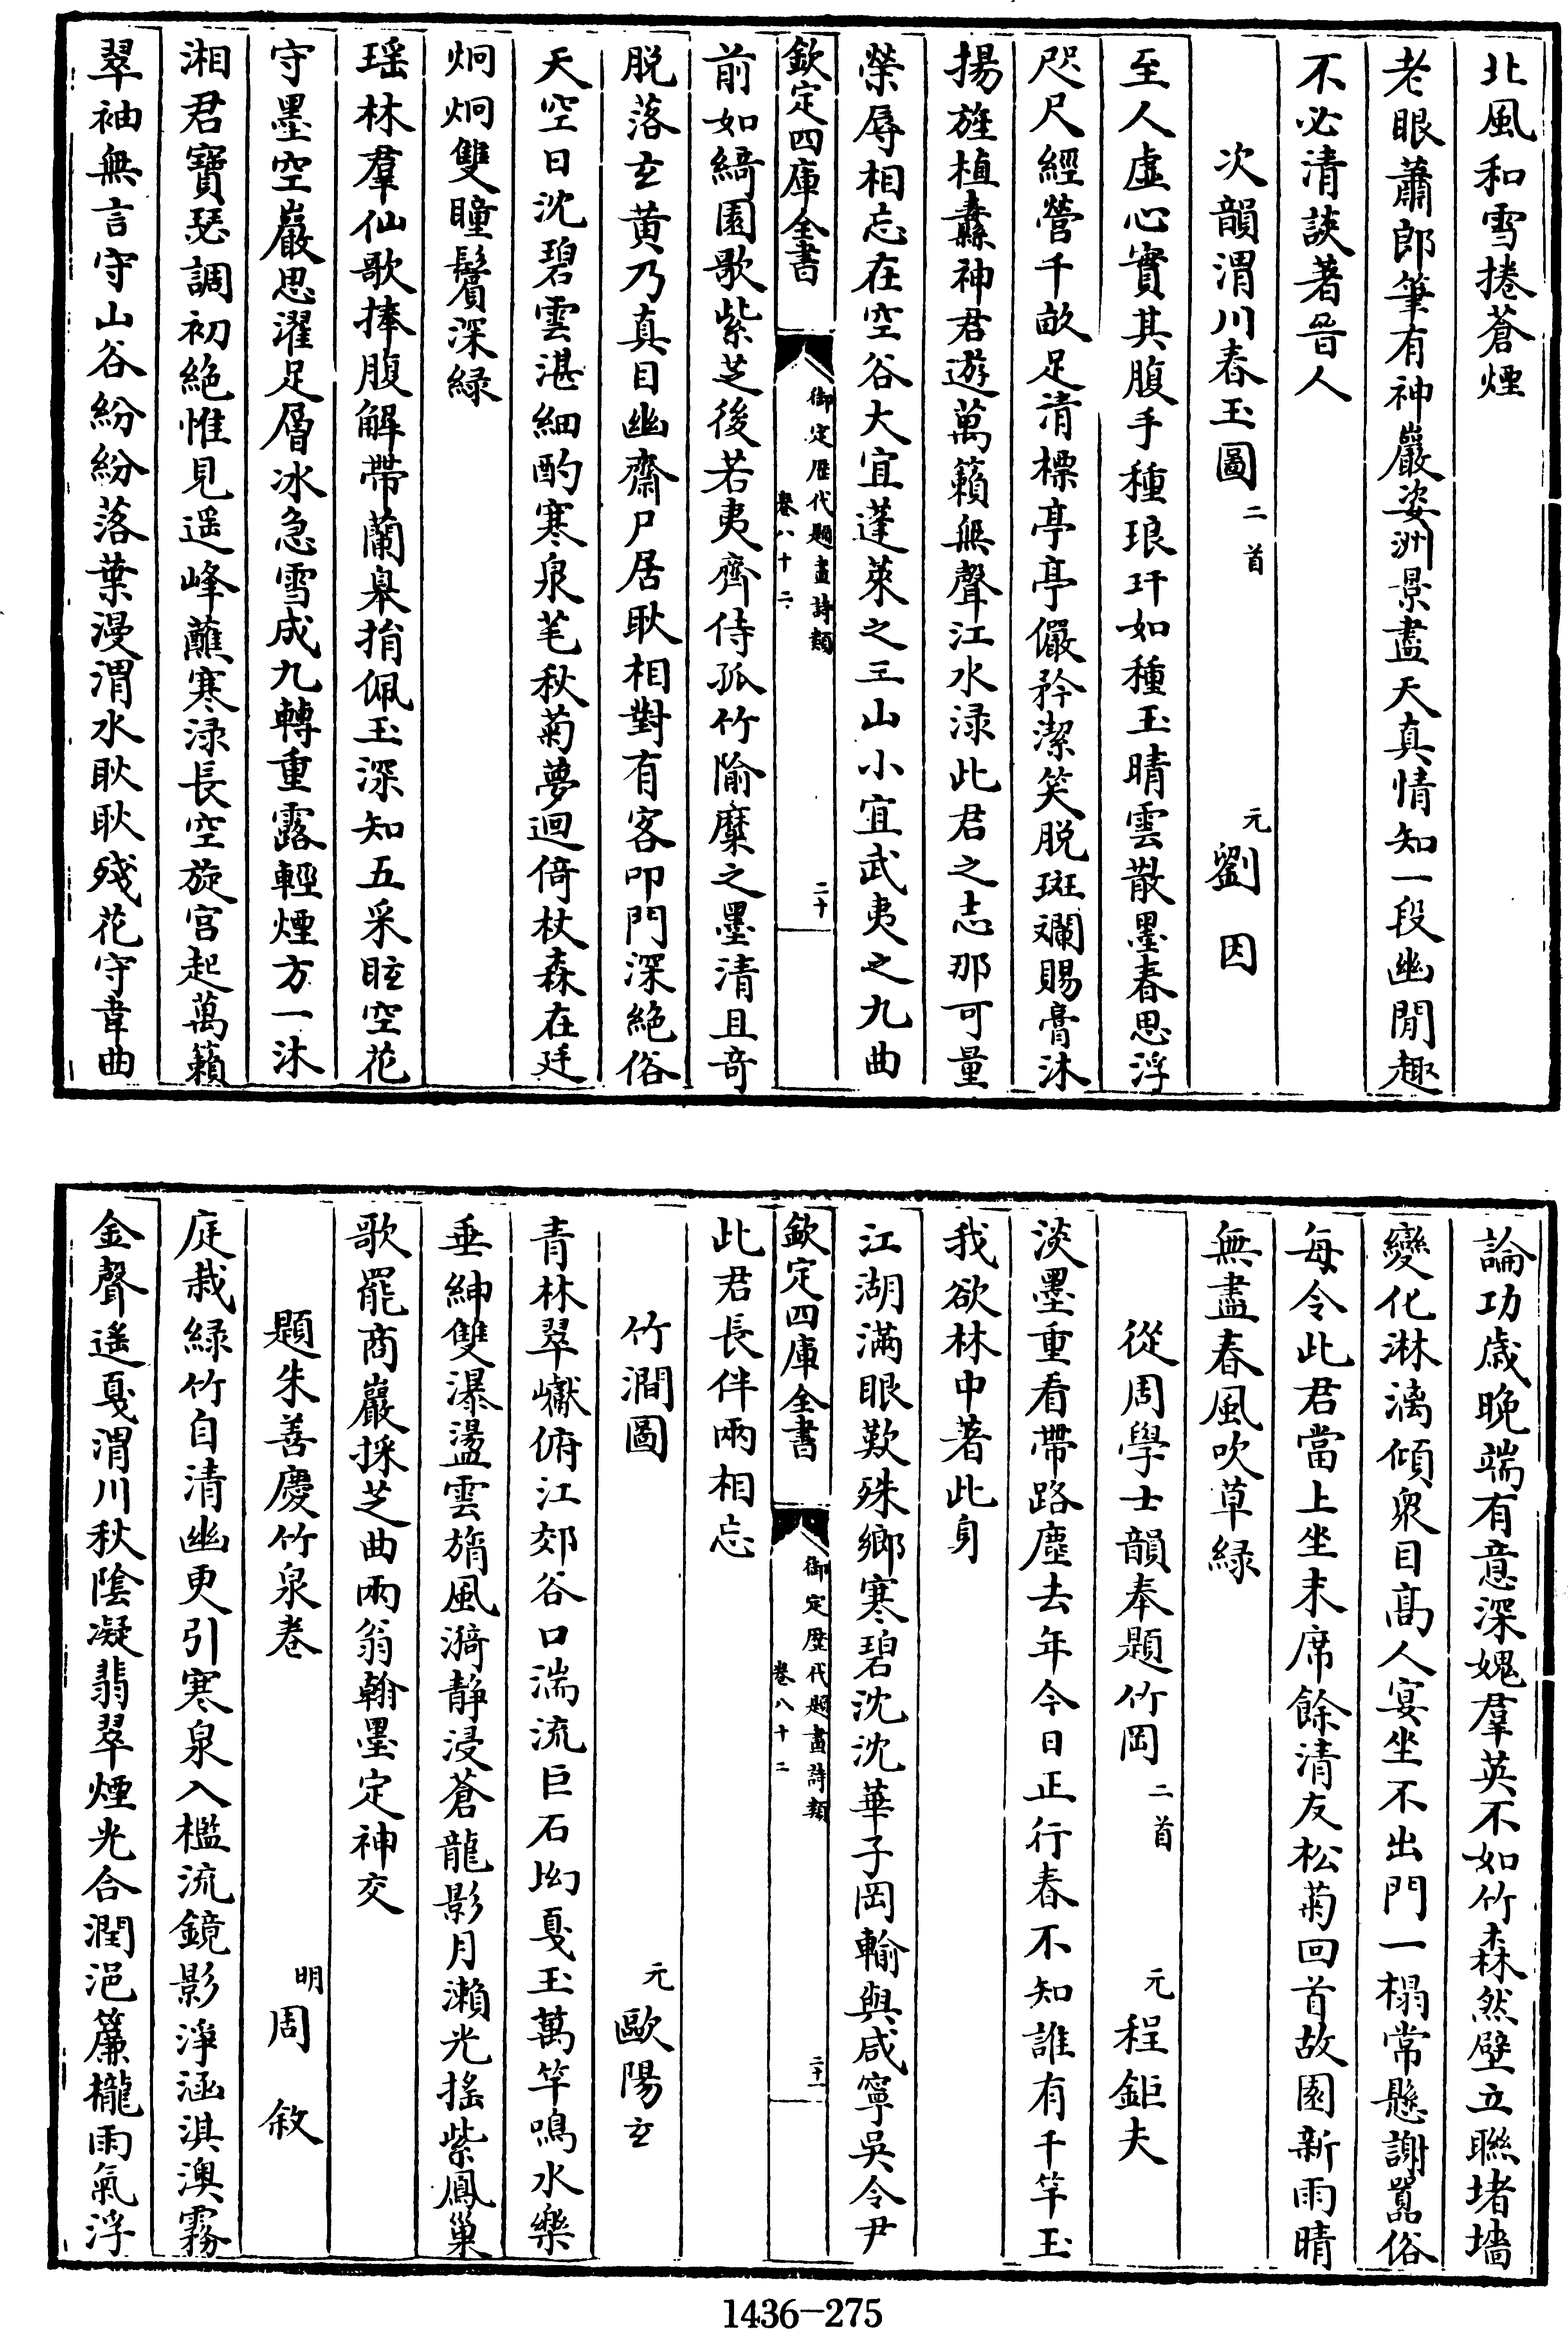 北風和雪捲蒼煙
老眼蕭郎筆有神巖姿洲景盡天真情知一段幽閒趣
不必清談著晉人
次韻渭川春玉圖二首 元劉因
至人虛心實其腹手種琅玕如種玉晴雲散墨春思浮
咫尺經營千畝足清標亭亭儼矜潔笑脱斑斕賜膏沐
揚旌植纛神君遊萬籟無聲江水渌此君之志那可量
榮辱相忘在空谷大宜蓬萊之三山小宜武夷之九曲
欽定四庫全書 御定歴代題畫詩類 卷八十二 二十
前如綺園歌紫芝後若夷齊侍孤竹隃糜之墨清且奇
脱落玄黄乃真目幽齋尸居耿相對有客叩門深絶俗
天空日沈碧雲湛細酌寒泉芼秋菊夢迴倚杖森在廷
炯炯雙瞳鬢深緑
瑶林羣仙歌捧腹解帶蘭皋捐佩玉深知五采眩空花
守墨空巖思濯足層冰急雪成九轉重露輕煙方一沐
湘君寶瑟調初絶惟見遥峰蘸寒渌長空旋宫起萬籟
翠袖無言守山谷紛紛落葉漫渭水耿耿殘花守韋曲
論功歲晚端有意深媿羣英不如竹森然壁立聯堵墻
變化淋漓傾衆目髙人宴坐不出門一榻常懸謝嚣俗
每令此君當上坐末席餘清友松菊回首故園新雨晴
無盡春風吹草緑
從周學士韻奉題竹岡二首 元程鉅夫
淡墨重看帶路塵去年今日正行春不知誰有千竿玉
我欲林中著此身
江湖滿眼歎殊鄉寒碧沈沈華子岡輸與咸寧吳令尹
欽定四庫全書 御定歴代題畫詩類 卷八十二 二十一
此君長伴兩相忘
竹澗圖 元歐陽玄
青林翠巘俯江郊谷口湍流巨石坳戛玉萬竿鳴水樂
垂紳雙瀑盪雲旓風漪静浸蒼龍影月瀨光摇紫鳳巢
歌罷商巖採芝曲兩翁翰墨定神交
題朱善慶竹泉卷 明周敘
庭栽緑竹自清幽更引寒泉入檻流鏡影淨涵淇澳霧
金聲遥戛渭川秋陰凝翡翠煙光合潤浥簾櫳雨氣浮
1436-275